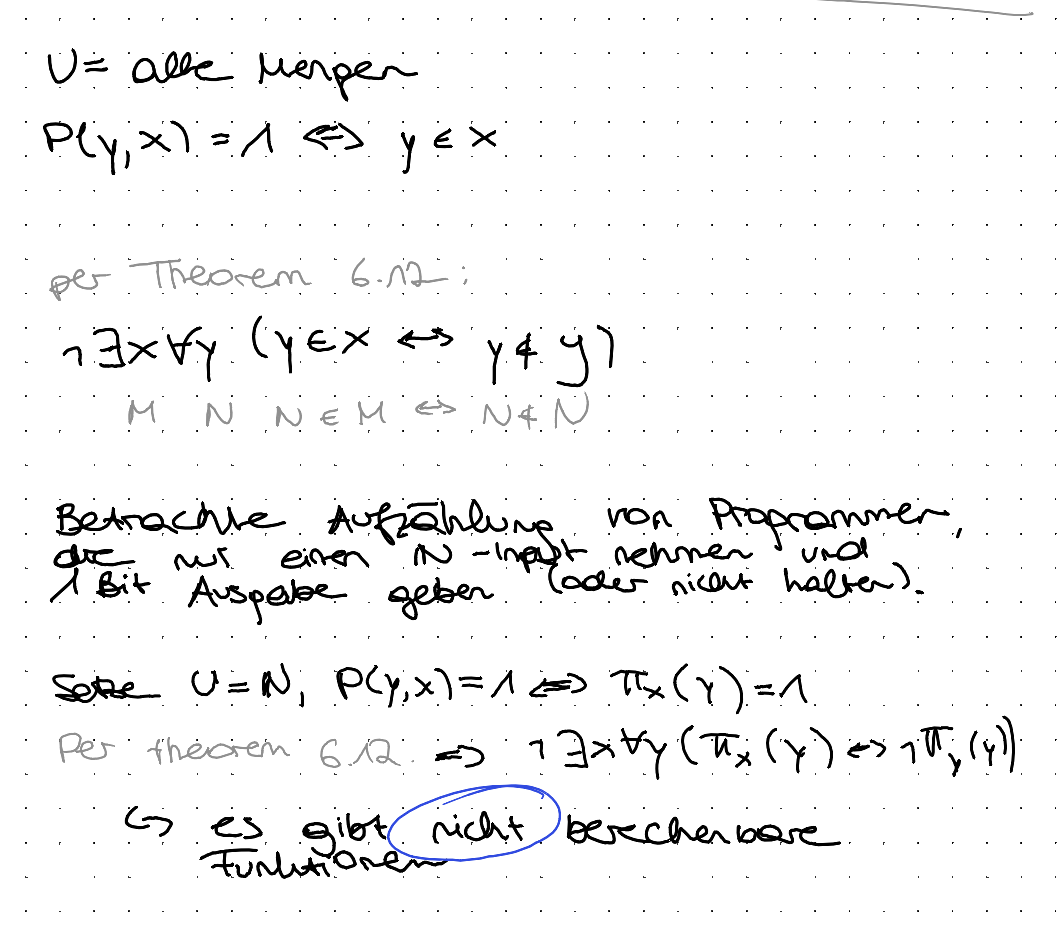 U = alle Mengen
P(y,x) = 1 ⇔ y ∈ x
per Theorem 6.12:
¬∃x∀y (y∈x ↔ y∉y)
M N N∈M ↔ N∉N
Betrachte Aufzählung von Programmen,
die nur einen ℕ-Input nehmen und
1 Bit Ausgabe geben (oder nicht halten).
Setze U=ℕ, P(y,x)=1 ⇔ π_x(y)=1
Per theorem 6.12. ⇒ ¬∃x∀y(π_x(y) ↔ ¬π_y(y))
↪ es gibt nicht berechenbare
Funktionen